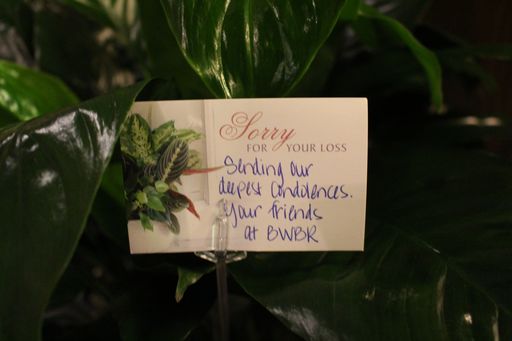 Sorry
FOR YOUR LOSS
Sending our
deepest condolences.
Your friends
at BWBR